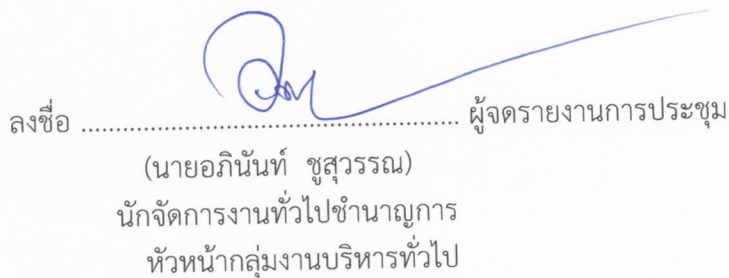 ลงชื่อ ............................................................ ผู้จดรายงานการประชุม
(นายอภินันท์ ชูสุวรรณ)
นักจัดการงานทั่วไปชำนาญการ
หัวหน้ากลุ่มงานบริหารทั่วไป